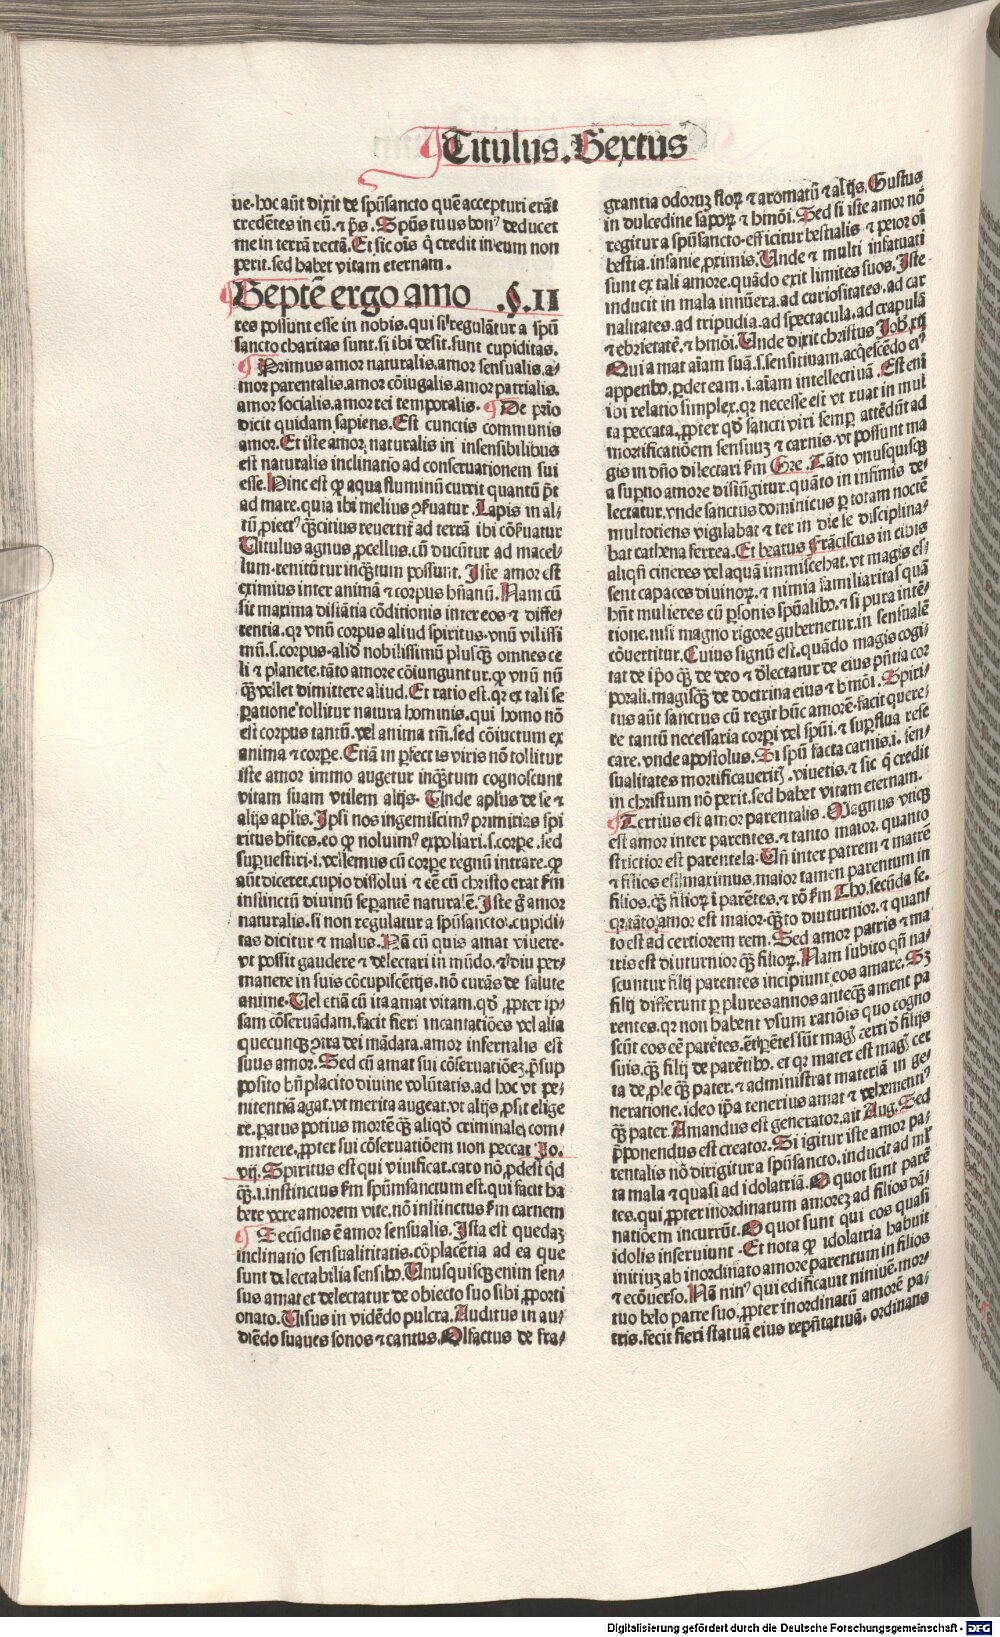 Titulus. Sextus
ue. hoc aũt dixit de spũsancto quẽ accepturi erãt
credẽtes in eũ. ⁊ p̃s. Spũs tuus bonꝰ deducet
me in terrã rectã. Et sic oĩs q̃ credit in eum non
perit. sed habet vitam eternam.
Septẽ ergo amo .§. II
res possunt esse in nobis. qui si regulãtur a spũ
sancto charitas sunt. si ibi desit. sunt cupiditas.
¶ Primus amor naturalis. amor sensualis. a⸗
mor parentalis. amor cõiugalis. amor patrialis.
amor socialis. amor rei temporalis. ¶ De prĩo
dicit quidam sapiens. Est cunctis communis
amor. Et iste amor naturalis in insensibilibus
est naturalis inclinatio ad conseruationem sui
esse. Hinc est ꝙ aqua fluminũ currit quantũ põt
ad mare. quia ibi melius ꝯseruatur. Lapis in al⸗
tũ ꝓiectꝰ q̃scitius reuertit̃ ad terrã ibi cõseruatur
Vitulus agnus ꝓcellus. cũ ducũtur ad macel⸗
lum. renitũtur inq̃tum possunt. Iste amor est
eximius inter animã ⁊ corpus hũanũ. Nam cũ
sit maxima distãtia cõditionis inter eos ⁊ diffe⸗
rentia. qr vnũ corpus aliud spiritus. vnũ vilissi
mũ. s. corpus. aliđ nobilissimũ plusq̃ omnes ce
li ⁊ planete. tãto amore cõiunguntur. ꝙ vnũ nũ
q̃ vellet dimittere aliud. Et ratio est. qr ex tali se
ꝑatione tollitur natura hominis. qui homo nõ
est corpus tantũ. vel anima tm̃. sed cõiuctum ex
anima ⁊ corpe. Etiã in ꝑfectis viris nõ tollitur
iste amor immo augetur inq̃tum cognoscunt
vitam suam vtilem alijs. Unde apłus de se ⁊
alijs apłis. Ipsi nos ingemiscimꝰ primitias spi
ritus hñtes. eo ꝙ nolumꝰ expoliari. s. corpe. sed
supuestiri. i. vellemus cũ corpe regnũ intrare. ꝙ
aũt diceret. cupio dissolui ⁊ eẽ cũ christo erat ẜm
instinctũ diuinũ seperantẽ naturalẽ. Iste g̃ amor
naturalis. si non regulatur a spũsancto. cupidi⸗
tas dicitur ⁊ malus. Nã cũ quis amat viuere.
vt possit gaudere ⁊ delectari in mũdo. ⁊ diu per⸗
manere in suis cõcupiscẽtijs. nõ curãs de salute
anime. Vel etiã cũ ita amat vitam. qđ ꝓpter ip⸗
sam cõseruãdam. facit fieri incantatiões vel alia
quecunq̃ ꝯtra dei mãdata. amor infernalis est
suus amor. Sed cũ amat sui cõseruatiõez. ꝓ̃sup
posito bñplacito diuine volũtatis. ad hoc vt pe⸗
nitentiã agat. vt merita augeat. vt alijs ꝓsit elige
re. paratus potius mortẽ q̃ aliqđ criminale com⸗
mittere. ꝓpter sui cõseruatiõem non peccat Io.
vij. Spiritus est qui viuificat. caro nõ ꝓdest q̃đ
q̃. i. instinctus ẜm spũmsanctum est. qui facit ha
bere vere amorem vite. nõ instinctus ẜm carnem
¶ Secũdus ẽ amor sensualis. Ista est quedaz
inclinatio sensualititatis. cõplacẽtia ad ea que
sunt delectabilia sensibꝰ. Unusquisq̃ enim sen⸗
sus amat et delectatur de obiecto suo sibi ꝓporti
onato. Visus in vidẽdo pulcra. Auditus in au⸗
diẽdo suaues sonos ⁊ cantus. Olfactus de fra⸗
grantia odoruz floꝝ ⁊ aromatũ ⁊ alijs. Gustus
in dulcedine saporꝝ ⁊ hmõi. Sed si iste amor nõ
regitur a spũsancto. efficitur bestialis ⁊ peior oĩ
bestia. insanie ꝓximis. Unde ⁊ multi infatuati
sunt ex tali amore. quãdo exit limites suos. Iste
inducit in mala innũera. ad curiositates. ad car
nalitates. ad tripudia. ad spectacula. ad crapulã
⁊ ebrietatẽ. ⁊ hmõi. Unde dixit christus Joh. xij
Qui amat aĩam suã. s. sensitiuam. acq̃escẽdo eiꝰ
appetibꝰ. ꝑdet eam. i. aĩam intellectiuã. Est enĩ
ibi relatio simplex. qr necesse est vt ruat in mul
ta peccata. ꝓpter qđ sancti viri semꝑ attẽdũt ad
mortificatiõem sensuuz ⁊ carnis. vt possunt ma
gis in dño dilectari ẜm Gre. Tãto vnusquisq̃
a supno amore disiũgitur. quãto in infimis de⸗
lectatur. vnde sanctus dominicus ꝑ totam noctẽ
multotiens vigilabat ⁊ ter in die se disciplina⸗
bat cathena ferrea. Et beatus Frãciscus in cibis
aliqñ cineres vel aquã immiscebat. vt magis es⸗
sent capaces diuinoꝝ. ⁊ nimia familiaritas quã
hñt mulieres cũ ꝑsonis spũalibꝰ. ⁊ si pura intẽ⸗
tione. nisi magno rigore gubernetur. in sensualẽ
cõuertitur. Cuius signũ est. quãdo magis cogi⸗
tat de ipo q̃ de deo ⁊ dłectatur de eius p̃ntia cor
porali. magisq̃ de doctrina eius ⁊ hmõi. Spiri⸗
tus aũt sanctus cũ regit hũc amorẽ. facit quere⸗
re tantũ necessaria corpi vel spũi. ⁊ supflua rese
care. vnde apostolus. Si spũ facta carnis. i. sen⸗
sualitates mortificaueritꝭ. viuetis. ⁊ sic q̃ credit
in christum nõ perit. sed habet vitam eternam.
¶ Tertius est amor parentalis. Magnus vtiq̃
est amor inter parentes. ⁊ tanto maior. quanto
strictior est parentela. Vñ inter patrem ⁊ matrẽ
⁊ filios est maximus. maior tamen parentum in
filios. q̃ filioꝝ ĩ parẽtes. ⁊ rõ ẜm Tho. secũda se.
qr tãto amor est maior. q̃to diuturnior. ⁊ quan
to est ad certiorem rem. Sed amor patris ⁊ ma
tris est diuturnior q̃ filioꝝ. Nam subito qñ na⸗
scuntur filij parentes incipiunt eos amare. Sz
filij differunt ꝑ plures annos anteq̃ ament pa
rentes. qr non habent vsum ratiõis quo cogno
scũt eos eẽ parẽtes. ẽt parẽtes sũt magꝭ certi đ filijs
suis. q̃ filij de parẽtibꝰ. et qr mater est magꝭ cer
ta de ꝓle q̃ pater. ⁊ administrat materiã in ge⸗
neratione. ideo ip̃a tenerius amat ⁊ vehementiꝰ
q̃ pater. Amandus est generator. ait Aug. Sed
p̃ponendus est creator. Si igitur iste amor pa⸗
rentalis nõ dirigitur a spũsancto. inducit ad ml̃
ta mala ⁊ quasi ad idolatriã. O quot sunt parẽ
tes. qui ꝓpter inordinatum amorez ad filios dã⸗
natiõem incurrũt. O quot sunt qui eos quasi
idolis inseruiunt. Et nota ꝙ idolatria habuit
initiuz ab inordinato amore parentum in filios
⁊ ecõuerso. Nã ninꝰ qui edificauit niniuẽ. mor⸗
tuo belo patre suo. ꝓpter inordinatũ amorẽ pa⸗
tris. fecit fieri statuã eius rep̃ntatiuã. ordinans
Digitalisierung gefördert durch die Deutsche Forschungsgemeinschaft - DFG